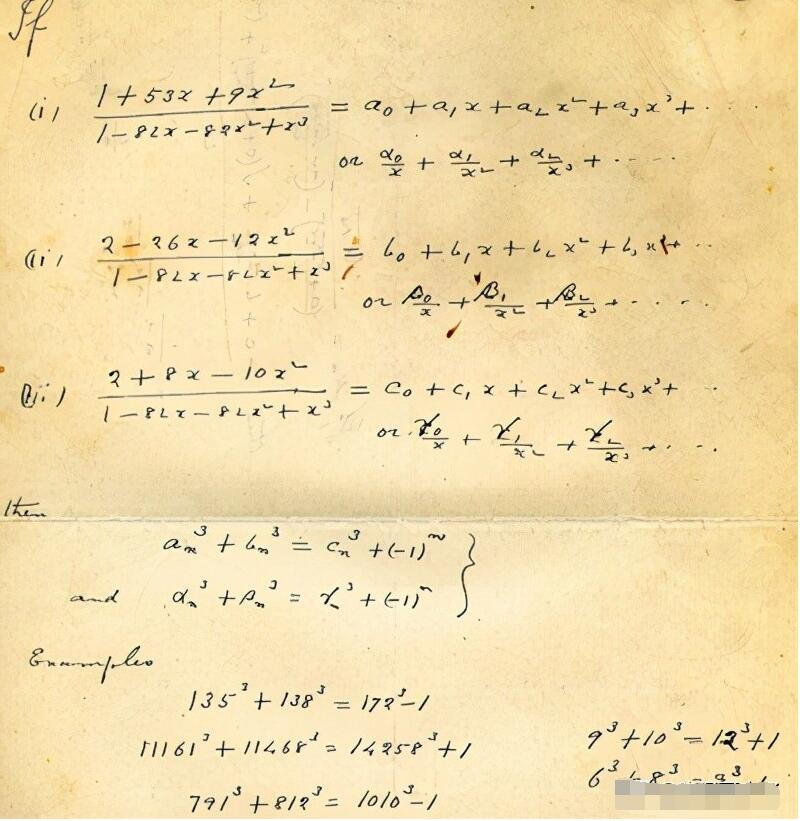 If
(i) (1 + 53x + 9x²)/(1 − 82x − 82x² + x³) = a₀ + a₁x + a₂x² + a₃x³ + · · · ·
or α₀/x + α₁/x² + α₂/x³ + · · · · ·
(ii) (2 − 26x − 12x²)/(1 − 82x − 82x² + x³) = b₀ + b₁x + b₂x² + b₃x³ + · ·
or β₀/x + β₁/x² + β₂/x³ + · · · · ·
(iii) (2 + 8x − 10x²)/(1 − 82x − 82x² + x³) = c₀ + c₁x + c₂x² + c₃x³ + · ·
or γ₀/x + γ₁/x² + γ₂/x³ + · · · ·
then
aₙ³ + bₙ³ = cₙ³ + (−1)ⁿ }
and αₙ³ + βₙ³ = γₙ³ + (−1)ⁿ
Examples
135³ + 138³ = 172³ − 1
11161³ + 11468³ = 14258³ + 1
791³ + 812³ = 1010³ − 1
9³ + 10³ = 12³ + 1
6³ + 8³ = 9³